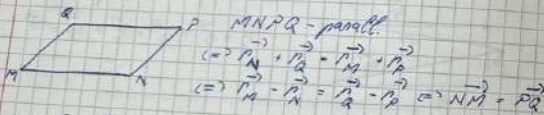 Q P MNPQ - parall.
<=> r⃗_N + r⃗_Q = r⃗_M + r⃗_P
M N <=> r⃗_M - r⃗_N = r⃗_Q - r⃗_P <=> NM⃗ = PQ⃗